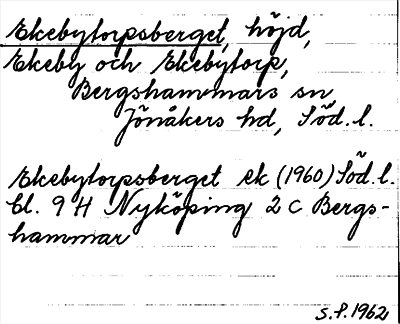 Ekebytorpsberget, höjd,
Ekeby och Ekebytorp,
Bergshammars sn
Jönåkers hd, Söd. l.
Ekebytorpsberget ek (1960) Söd. l.
bl. 9 H Nyköping 2 C Bergs-
hammar
S. P. 1962